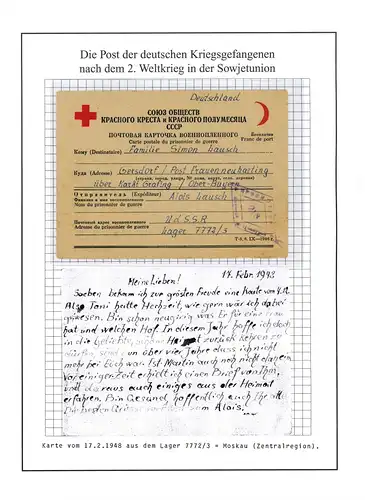 Die Post der deutschen Kriegsgefangenen
nach dem 2. Weltkrieg in der Sowjetunion
Deutschland
СОЮЗ ОБЩЕСТВ
КРАСНОГО КРЕСТА и КРАСНОГО ПОЛУМЕСЯЦА
СССР
ПОЧТОВАЯ КАРТОЧКА ВОЕННОПЛЕННОГО
Бесплатно
Carte postale du prisonnier de guerre
Franc de port
Кому (Destinataire) Familie Simon Lausch
Куда (Adresse) Gersdorf / Post Frauenneuharting
über Markt Grafing / Ober-Bayern
Отправитель (Expéditeur) Alois Lausch
Фамилия и имя военнопленного
Nom du prisonnier de guerre
Почтовый адрес военнопленного UdSSR
Adresse du prisonnier de guerre Lager 7772/3
17. Febr. 1948
Meine Lieben!
Soeben bekam ich zur grössten Freude eine Karte vom
Also Toni hatte Hochzeit, wie gern wär ich dabei
gewesen. Bin schon neugierig was Er für eine Frau
hat und welchen Hof. In diesem Jahr hoffe ich doch
in die geliebte, Heimat zurück kehren zu
dürfen, sind nun über vier Jahre dass ich nicht
mehr bei Euch war. Ist Martin auch noch nicht daheim
Vor einiger Zeit erhielt ich einen Brief von Ihm,
und daraus auch einiges aus der Heimat
erfahren. Bin Gesund, hoffentlich auch Ihr alle
Die besten Grüsse Alois.
Karte vom 17.2.1948 aus dem Lager 7772/3 = Moskau (Zentralregion).